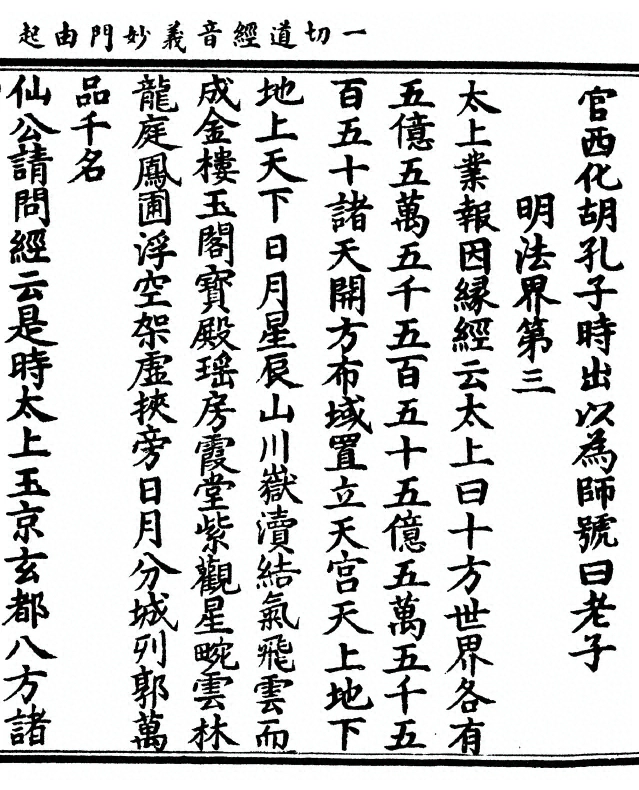 一切道經音義妙門由起
官西化胡孔子時出以為師號曰老子
明法界第三
太上業報因緣經云太上曰十方世界各有
五億五萬五千五百五十五億五萬五千五
百五十諸天開方布域置立天宫天上地下
地上天下日月星辰山川嶽瀆結氣飛雲而
成金樓玉閣寶殿瑶房霞堂紫觀星畹雲林
龍庭鳳圃浮空架虛挾旁日月分城列郭萬
品千名
仙公請問經云是時太上玉京玄都八方諸